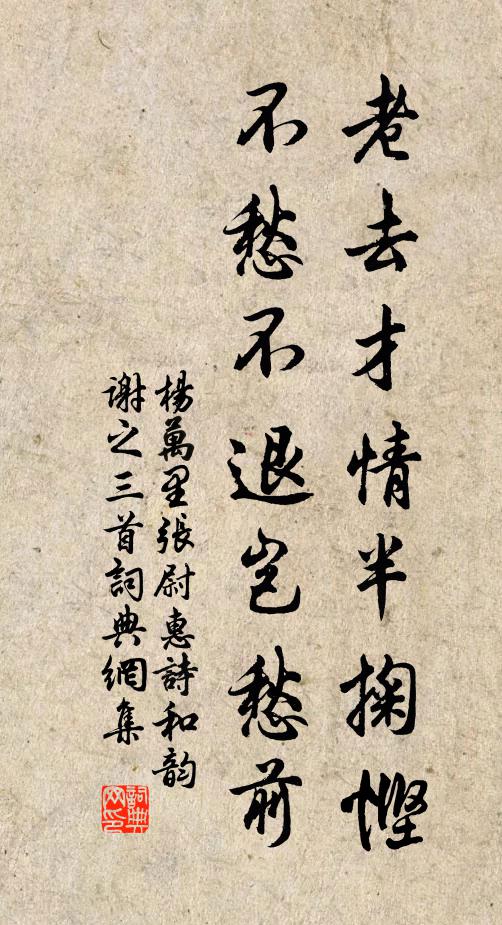 老去才情半掬慳
不愁不退岂愁前
楊萬里張尉惠詩和韵
謝之三首詞典網集
詞典网印